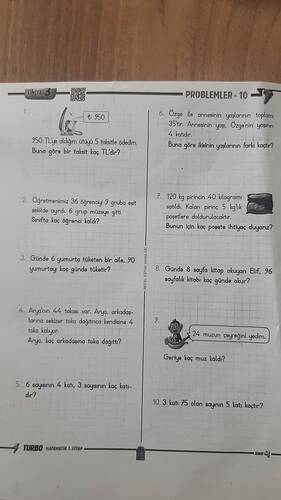 TEST 3
PROBLEMLER - 10
1.
₺ 950
950 TL'ye aldığım ütüyü 5 taksitle ödedim.
Buna göre bir taksit kaç TL'dir?
2. Öğretmenimiz 36 öğrenciyi 9 gruba eşit
şekilde ayırdı. 6 grup müzeye gitti.
Sınıfta kaç öğrenci kaldı?
3. Günde 6 yumurta tüketen bir aile, 90
yumurtayı kaç günde tüketir?
4. Arya'nın 44 tokası var. Arya, arkadaş-
larına sekizer toka dağıtınca kendisine 4
toka kalıyor.
Arya, kaç arkadaşına toka dağıttı?
5. 6 sayısının 4 katı, 3 sayısının kaç katı-
dır?
TURBO MATEMATİK 1. KİTAP
6. Özge ile annesinin yaşlarının toplamı
35'tir. Annesinin yaşı, Özge'nin yaşının
4 katıdır.
Buna göre ikisinin yaşlarının farkı kaçtır?
7. 120 kg pirincin 40 kilogramı
satıldı. Kalan pirinç 5 kg'lık
poşetlere doldurulacaktır.
Bunun için kaç poşete ihtiyaç duyarız?
8. Günde 8 sayfa kitap okuyan Elif, 96
sayfalık kitabı kaç günde okur?
9.
24 muzun çeyreğini yedim.
Geriye kaç muz kaldı?
10. 3 katı 75 olan sayının 5 katı kaçtır?
SINIF 4